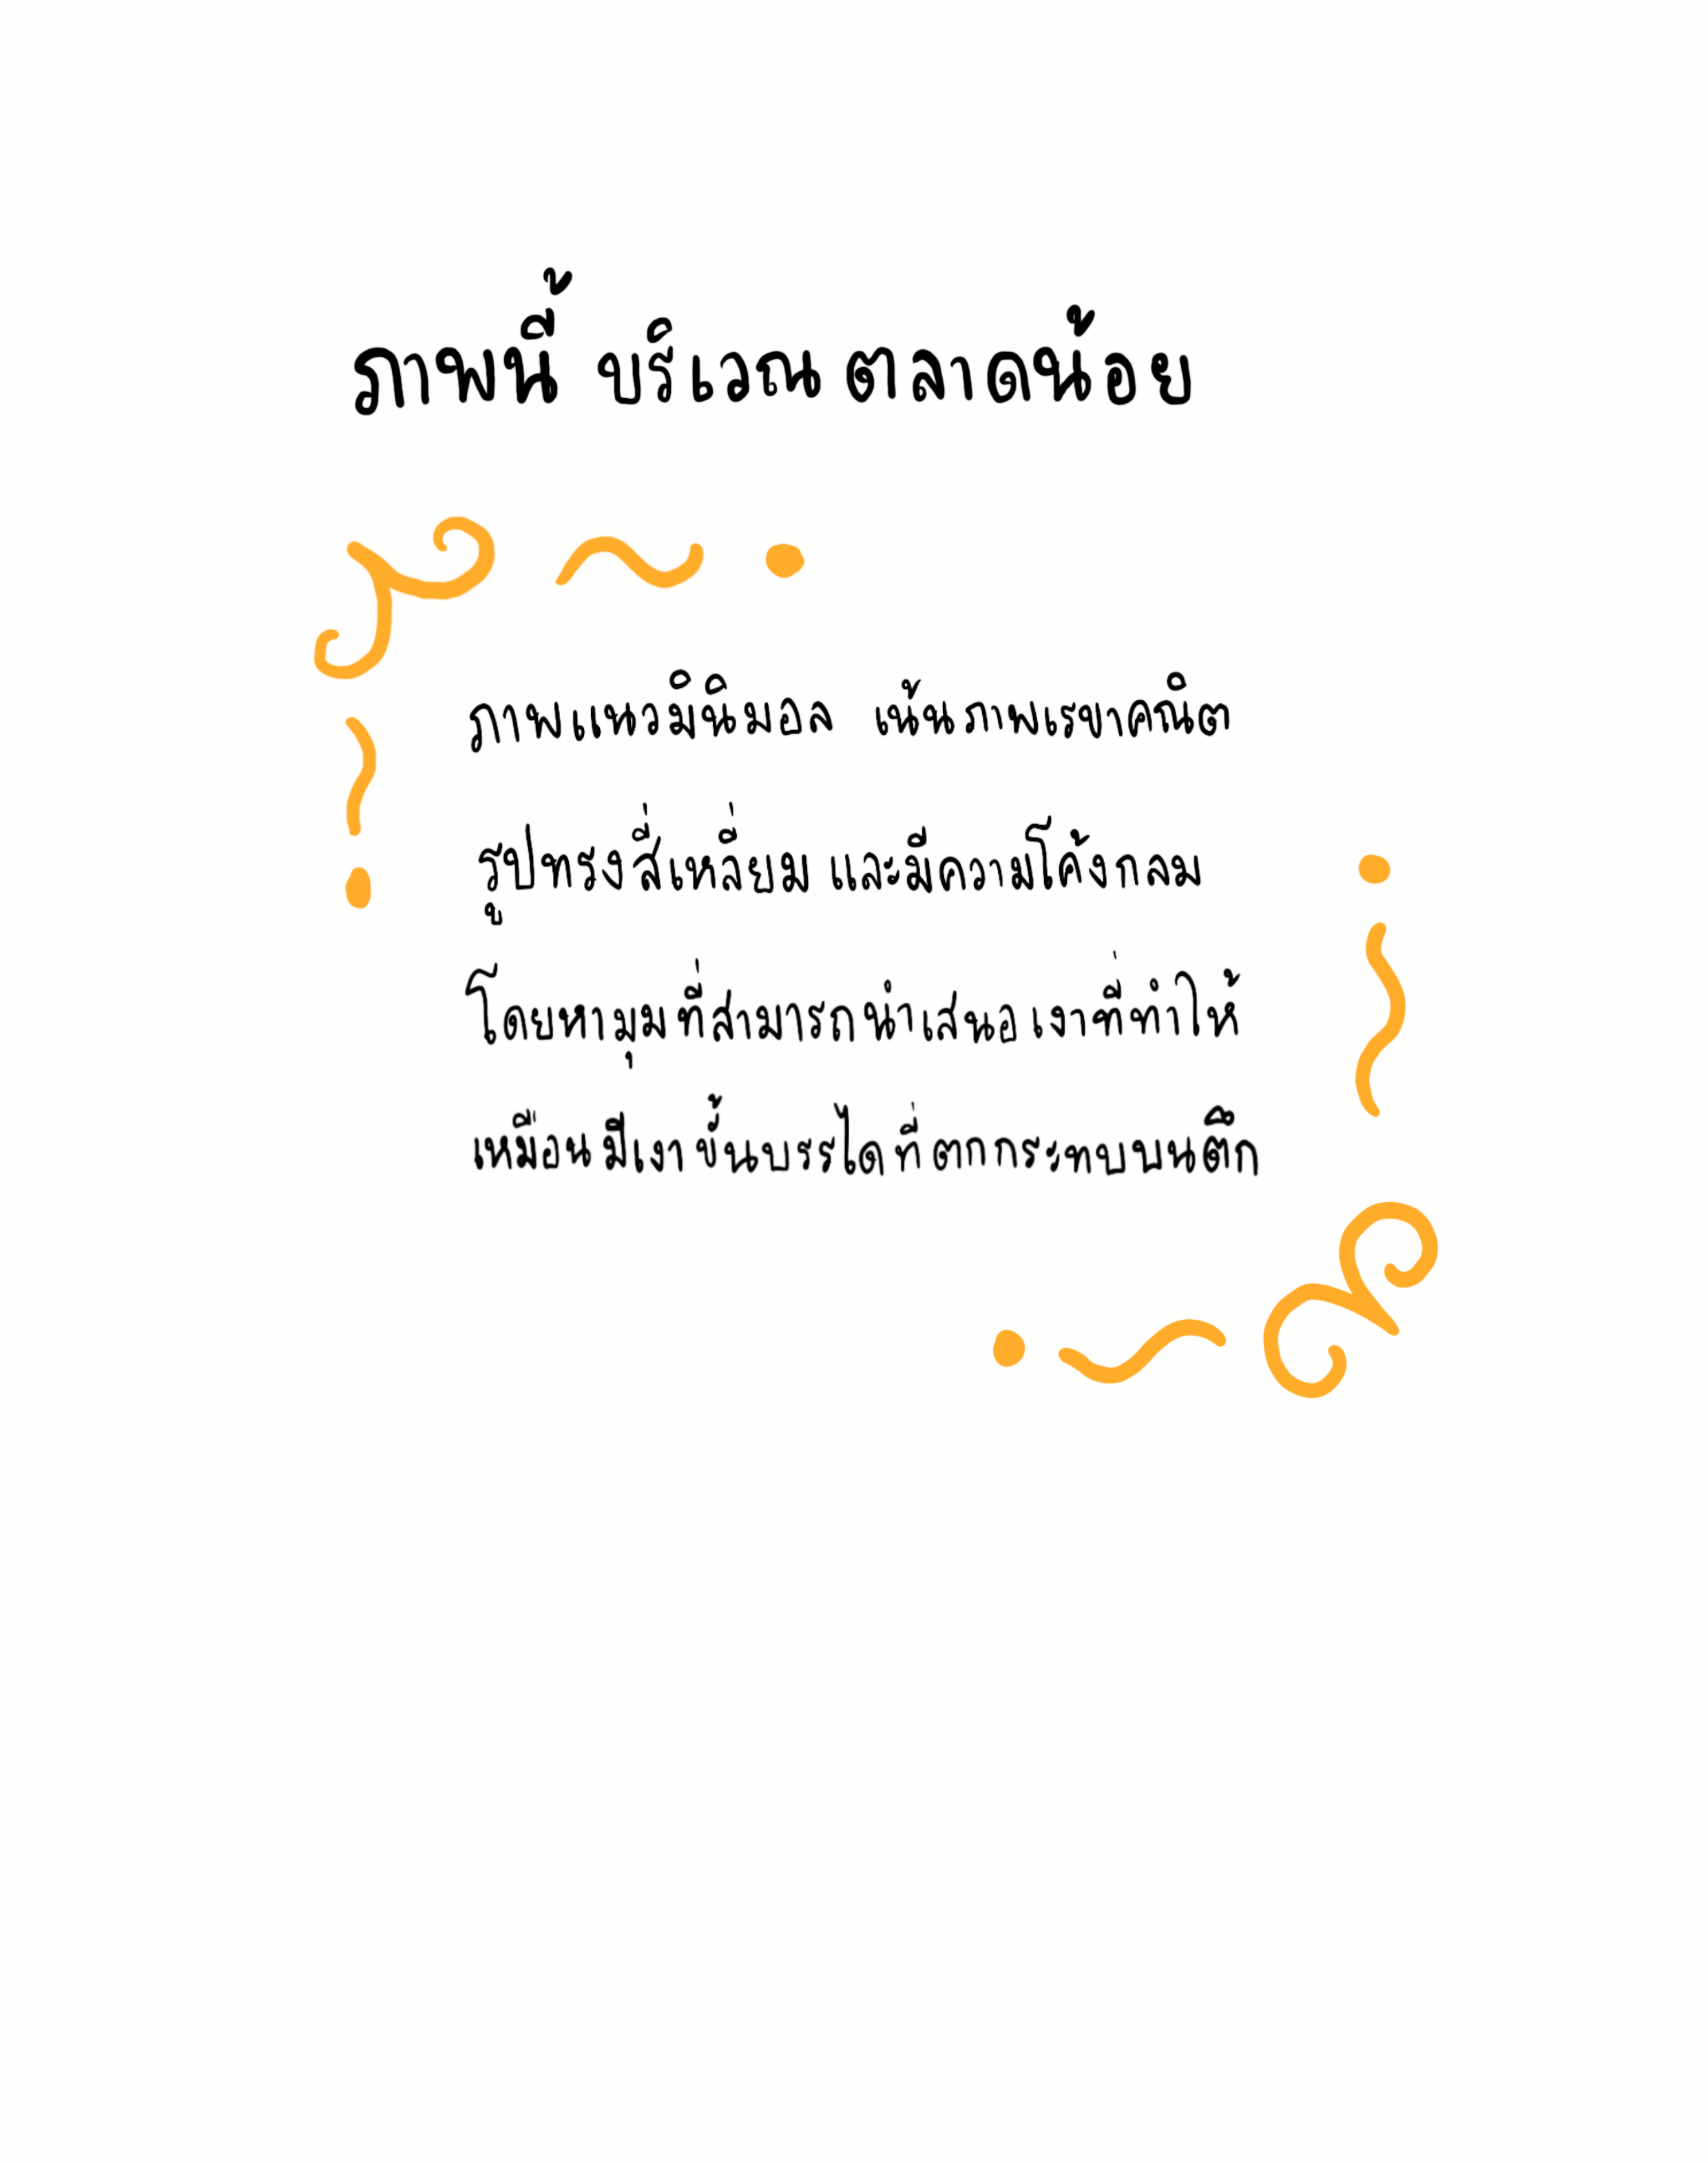 ภาพนี้ บริเวณตลาดน้อย
ภาพแนวมินิมอล เน้นภาพเรขาคณิต
รูปทรงสี่เหลี่ยม และมีความโค้งกลม
โดยหามุมที่สามารถนำเสนอเงาที่ทำให้
เหมือนมีเงาขั้นบรรไดที่ตกกระทบบนตึก